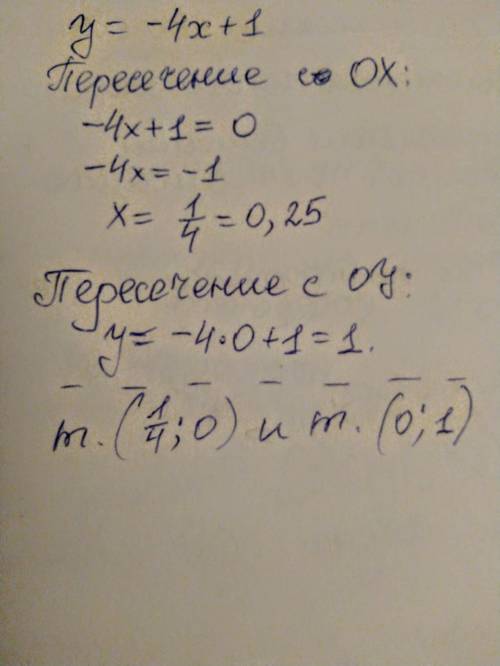 y = -4x+1
Пересечение с OX:
-4x+1 = 0
-4x = -1
x = 1/4 = 0,25
Пересечение с OY:
y = -4·0+1 = 1.
т. (1/4; 0) и т. (0; 1)